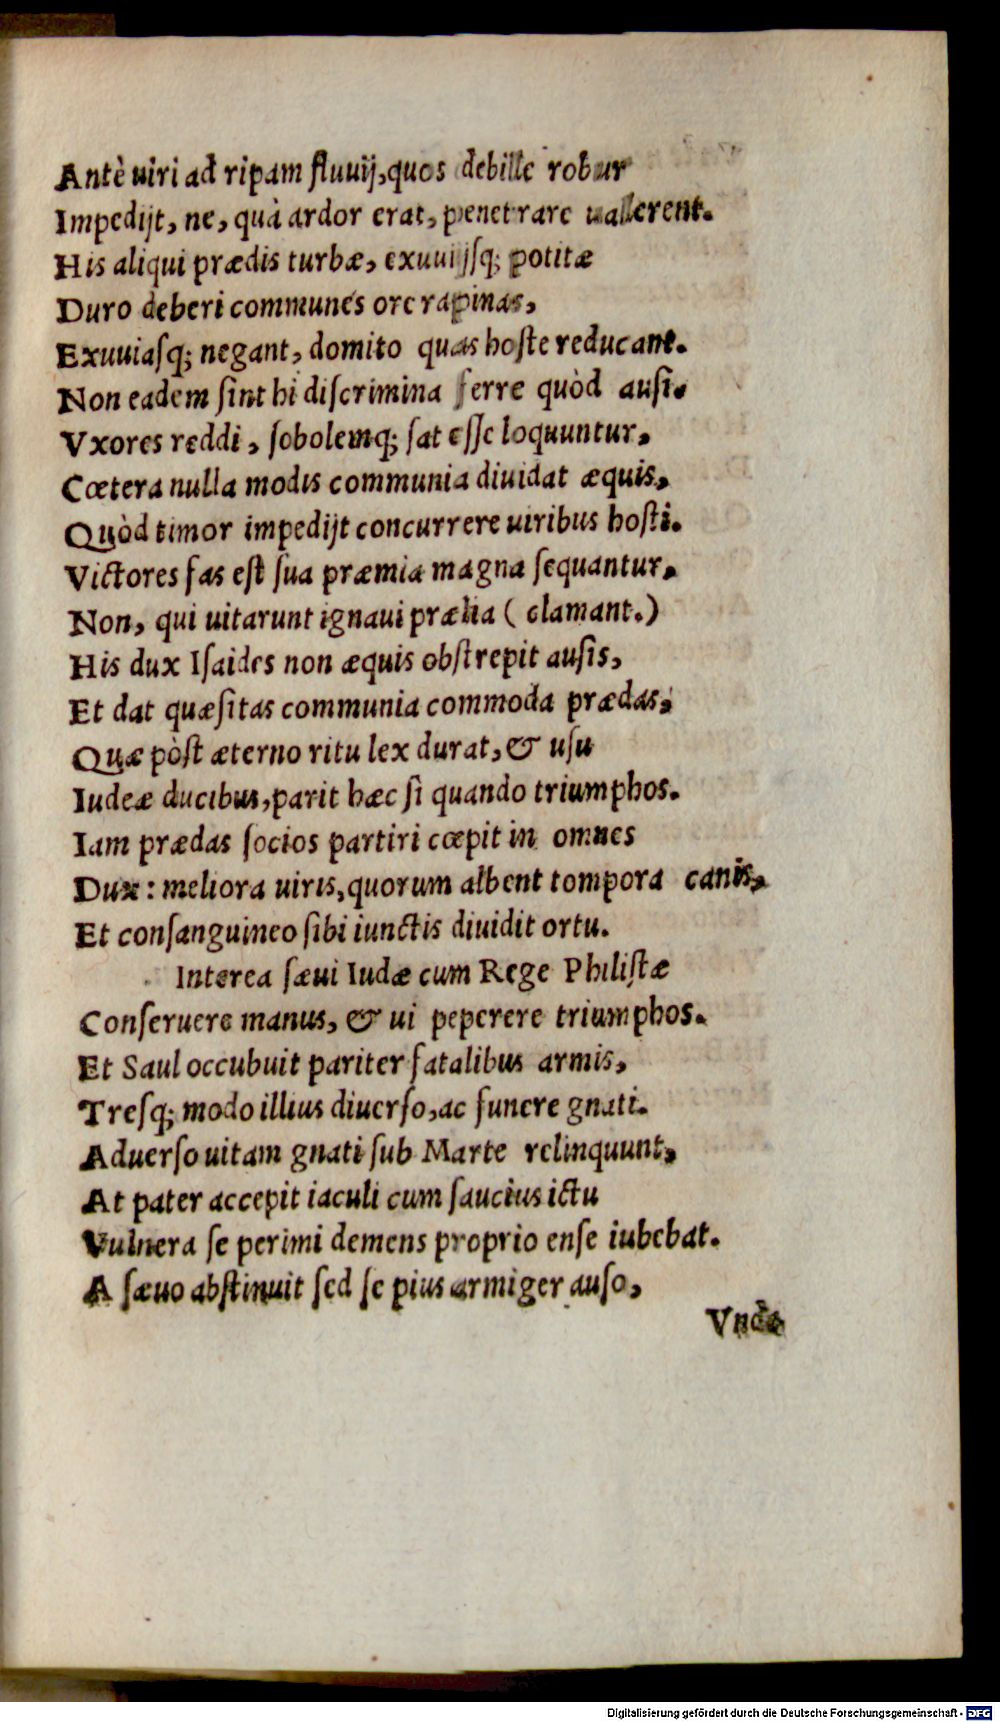 Antè uiri ad ripam fluuij, quos debille robur
Impedijt, ne, quà ardor erat, penetrare uallerent.
His aliqui prædis turbæ, exuuijsq; potitæ
Duro deberi communes ore rapinas,
Exuuiasq; negant, domito quas hoste reducant.
Non eadem sint hi discrimina ferre quòd ausi.
Vxores reddi, sobolemq; sat esse loquuntur,
Cœtera nulla modis communia diuidat æquis,
Quòd timor impedijt concurrere uiribus hosti.
Victores fas est sua præmia magna sequantur,
Non, qui uitarunt ignaui prælia ( clamant.)
His dux Isaides non æquis obstrepit ausis,
Et dat quæsitas communia commoda prædas;
Quæ pòst æterno ritu lex durat, & usu
Iudeæ ducibus, parit hæc si quando triumphos.
Iam prædas socios partiri cœpit in omnes
Dux: meliora uiris, quorum albent tompora canis,
Et consanguineo sibi iunctis diuidit ortu.
Interea sæui Iudæ cum Rege Philistæ
Conseruere manus, & ui peperere triumphos.
Et Saul occubuit pariter fatalibus armis,
Tresq; modo illius diuerso, ac funere gnati.
Aduerso uitam gnati sub Marte relinquunt,
At pater accepit iaculi cum saucius ictu
Vulnera se perimi demens proprio ense iubebat.
A sæuo abstinuit sed se pius armiger auso,
Vndè
Digitalisierung gefördert durch die Deutsche Forschungsgemeinschaft - DFG